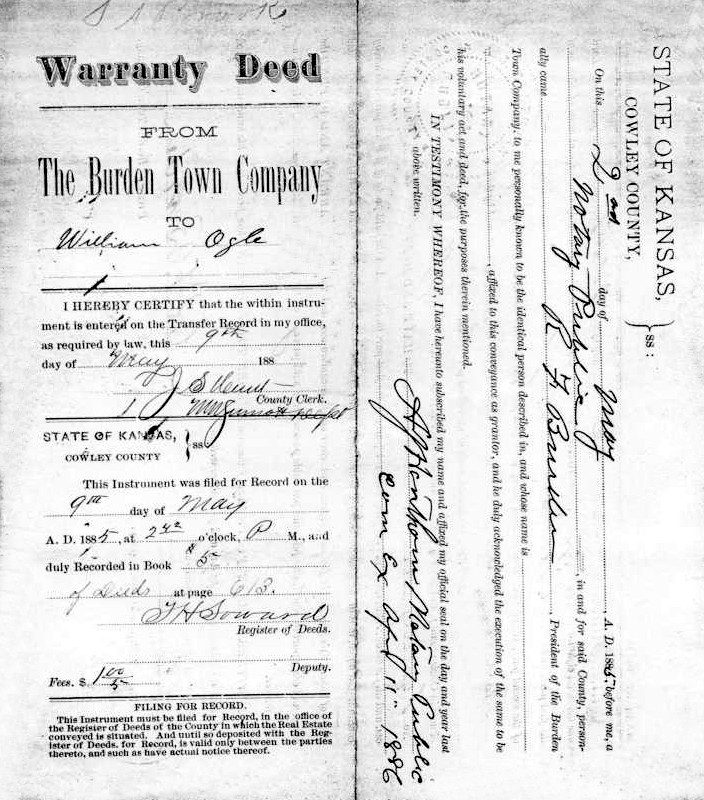 Warranty Deed
FROM
The Burden Town Company
TO
William Ogle
I HEREBY CERTIFY that the within instru-
ment is entered on the Transfer Record in my office,
as required by law, this 9th
day of May 188
J S Hunt
County Clerk.
STATE OF KANSAS,
COWLEY COUNTY } 88
This Instrument was filed for Record on the
9th day of May
A. D. 1885, at o'clock, P M., and
duly Recorded in Book 5
of Deeds at page 613.
T H Soward
Register of Deeds.
Deputy.
Fees. $ 1 00
FILING FOR RECORD.
This Instrument must be filed for Record, in the office of
the Register of Deeds of the County in which the Real Estate
conveyed is situated. And until so deposited with the Reg-
ister of Deeds. for Record, is valid only between the parties
thereto, and such as have actual notice thereof.
STATE OF KANSAS,
COWLEY COUNTY, } 88 :
On this 2nd day of May, A. D. 1885. before me, a
Notary Public, in and for said County, person-
ally came R F Burden, President of the Burden
Town Company, to me personally known to be the identical person described in, and whose name is
, affixed to this conveyance as grantor, and he duly acknowledged the execution of the same to be
his voluntary act and deed, for the purposes therein mentioned.
IN TESTIMONY WHEREOF, I have hereunto subscribed my name and affixed my official seal on the day and year last
above written.
Henthorn Notary Public
Com Ex Apl 11" 1886